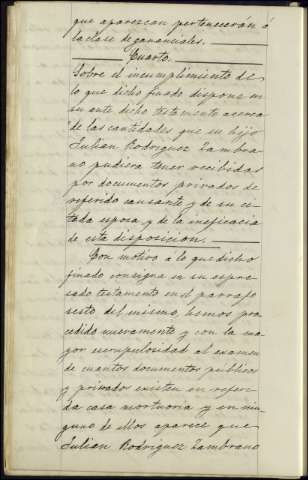 que aparezcan pertenecerán á
la clase de gananciales.
Cuarto.
Sobre el incumplimiento de
lo que dicho finado dispone en
su ante dicho testamento acerca
de las cantidades que su hijo
Julian Rodriguez Zambra-
no pudiera tener recibidas
por documentos privados de
referido causante y de su ci-
tada esposa y de la ineficacia
de esta disposicion.
Con motivo a lo que dicho
finado consigna en su espre-
sado testamento en el parrafo
sesto del mismo, hemos pro-
cedido nuevamente y con la ma-
yor escrupulosidad al examen
de cuantos documentos publicos
y privados existen en referi-
da casa mortuoria y en nin-
guno de ellos aparece que
Julian Rodriguez Zambrano